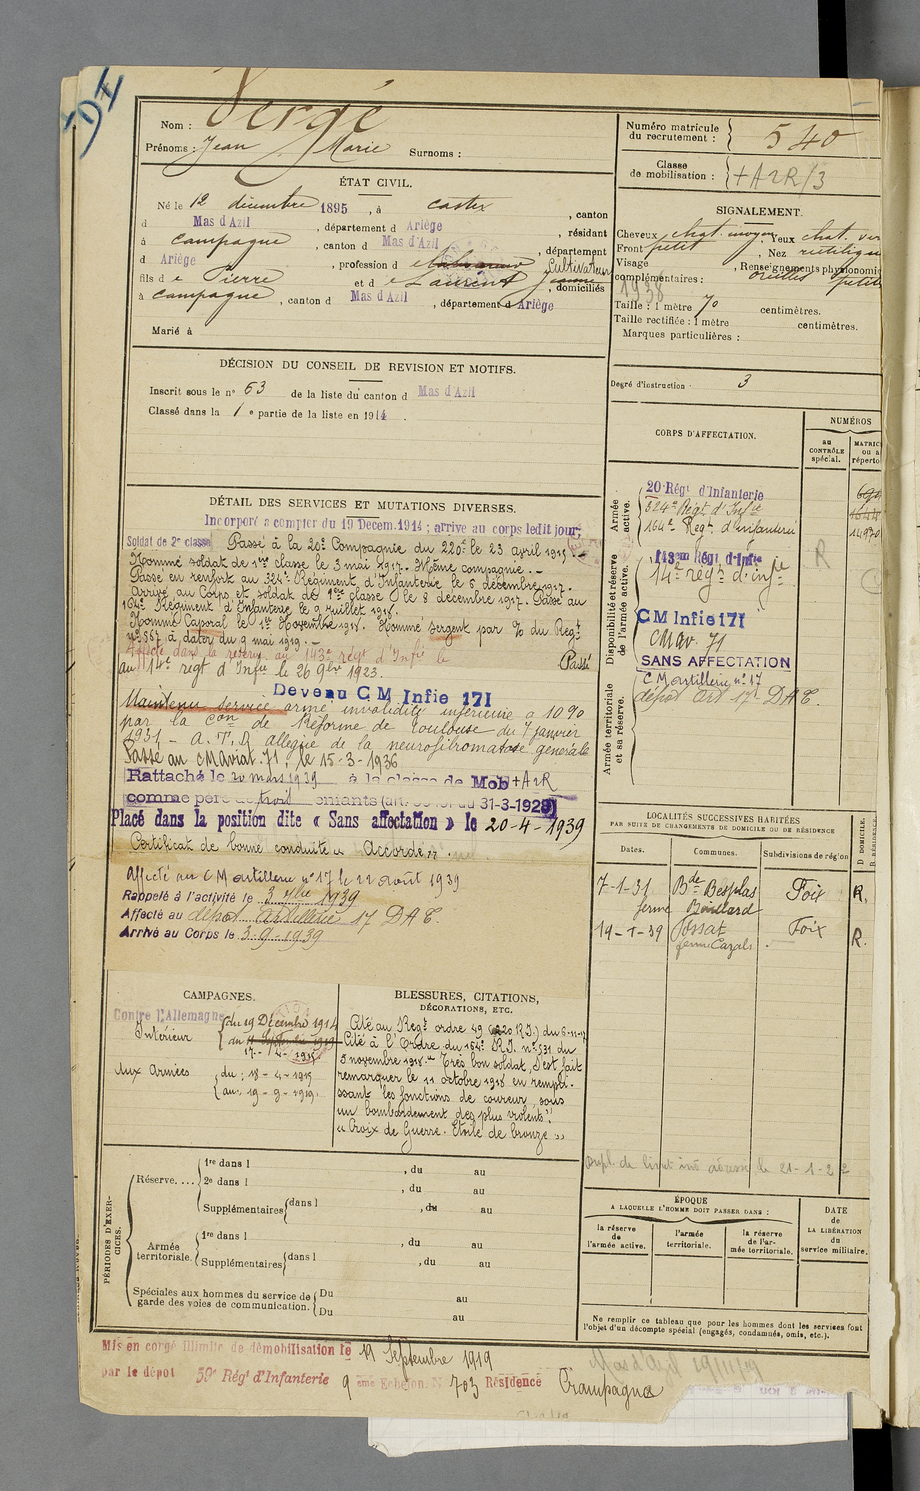 DI
Nom : Vergé
Prénoms : Jean Marie Surnoms :
ÉTAT CIVIL.
Né le 12 décembre 1895, à castex, canton
d Mas d'Azil, département d Ariège, résidant
à campagne, canton d Mas d'Azil, département
d Ariège, profession d e cultivateur
fils d e Pierre et d e Laurent Jeanne, domiciliés
à campagne, canton d Mas d'Azil, département d Ariège
Marié à
DÉCISION DU CONSEIL DE REVISION ET MOTIFS.
Inscrit sous le n° 63 de la liste du canton d Mas d'Azil
Classé dans la 1e partie de la liste en 1914.
DÉTAIL DES SERVICES ET MUTATIONS DIVERSES.
Incorporé a compter du 19 Decem. 1914 ; arrive au corps ledit jour;
Soldat de 2e classe Passé à la 20e Compagnie du 220e le 23 avril 1915
Nommé soldat de 1ère classe le 3 mai 1917. Même compagnie. -
Passé en renfort au 324e Régiment d'Infanterie le 6 décembre 1917.
Arrivé au Corps et soldat de 1ère classe le 8 décembre 1917. Passé au
164e Régiment d'Infanterie le 9 juillet 1918.
Nommé Caporal le 1er Novembre 1918. Nommé sergent par % du Régt
n° 567 à dater du 9 mai 1919. -
Affecté dans la réserve au 143e régt d'Infie le
Passé
au 14e régt d'Infie le 26 9bre 1923.
Devenu C M Infie 171
Maintenu service armé invalidité inférieure à 10 %
par la Con de Réforme de Toulouse du 7 janvier
1931 - A.T.D allègue de la neurofibromatose générale
Passé au CM Aviat. 71, le 15-3-1936
Rattaché le 20 mars 1939 à la classe de Mob + A2R
comme père de trois enfants (art. 58 loi du 31-3-1928)
Placé dans la position dite « Sans affectation » le 20-4-1939
Certificat de bonne conduite "Accordé".
Affecté au C M artillerie n° 17 le 22 août 1939
Rappelé à l'activité le 3 7bre 1939
Affecté au dépôt artillerie 17 DAT.
Arrivé au Corps le 3.9.1939
CAMPAGNES.
Contre l'Allemagne
Intérieur du 19 Décembre 1914
au 17-4-1915
Aux Armées du : 18-4-1915
au : 19-9-1919.
BLESSURES, CITATIONS,
DÉCORATIONS, ETC.
Cité au Regt ordre 49 (220 R.I.) du 6-11-17
Cité à l'Ordre du 164e R.I. n° 531 du
5 novembre 1918. "Très bon soldat, s'est fait
remarquer le 11 octobre 1918 en remplis-
sant les fonctions de coureur sous
un bombardement des plus violents"
"Croix de Guerre. Etoile de bronze"
PÉRIODES D'EXERCICES.
Réserve.... 1re dans l , du au
2e dans l , du au
Supplémentaires dans l , du au
Armée territoriale. 1re dans l , du au
Supplémentaires dans l , du au
Spéciales aux hommes du service de garde des voies de communication. Du au
Du au
Mis en congé illimité de démobilisation le 19 Septembre 1919
par le dépôt 59e Rég d'Infanterie 9 ème Echelon. N 703 Résidence Campagne
Numéro matricule du recrutement : 540
Classe de mobilisation : + A2R/3
SIGNALEMENT.
Cheveux chat. moyen, Yeux chat. ver
Front petit, Nez rectiligne
Visage , Renseignements physionomiques
complémentaires : oreilles petites
1938
Taille : 1 mètre 70 centimètres.
Taille rectifiée : 1 mètre centimètres.
Marques particulières :
Degré d'instruction · 3
CORPS D'AFFECTATION.
NUMÉROS
au CONTRÔLE spécial.
MATRIC ou a réperto
Armée active.
20 Régt d'Infanterie
324e Régt d'Infie
164e Régt d'infanterie
14970
Disponibilité et réserve de l'armée active.
143em Régt d'Infie
14e régt d'infie
R
CM Infie 171
CM Av. 71
SANS AFFECTATION
Armée territoriale et sa réserve.
C M artillerie n° 17
dépôt art 17 DAT.
LOCALITÉS SUCCESSIVES HABITÉES
PAR SUITE DE CHANGEMENTS DE DOMICILE OU DE RÉSIDENCE
Dates. Communes. Subdivisions de région D. DOMICILE. R. RÉSIDENCE.
7-1-31 Bde Besplas Foix R.
ferme Boillard
19-1-39 Fossat Foix R.
ferme Cazals
le 21-1-22
ÉPOQUE
A LAQUELLE L'HOMME DOIT PASSER DANS :
la réserve de l'armée active.
l'armée territoriale.
la réserve de l'armée territoriale.
DATE de LA LIBÉRATION du service militaire.
Ne remplir ce tableau que pour les hommes dont les services font
l'objet d'un décompte spécial (engagés, condamnés, omis, etc.).
Mas d'Azil